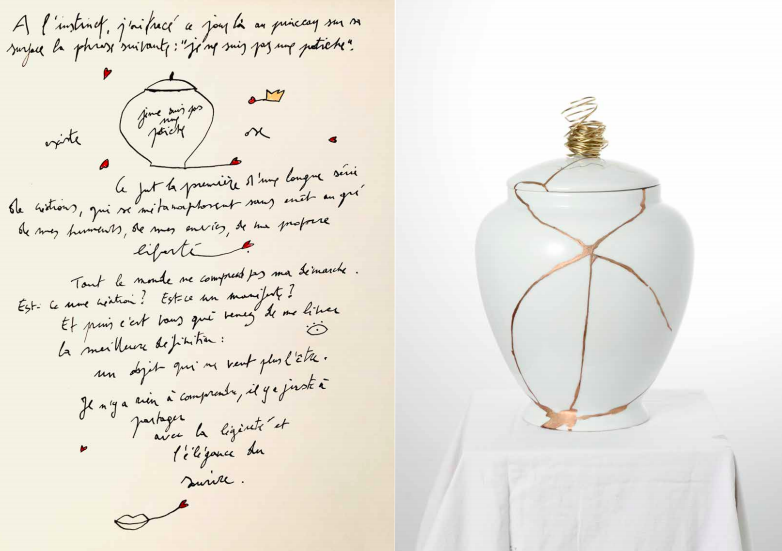 A l'instinct, j'ai tracé ce jour là au pinceau sur sa
surface la phrase suivante : "je ne suis pas une potiche".
je ne suis pas
une
potiche
existe
ose
Ce fut la première d'une longue série
de créations, qui se métamorphosent sans arrêt au gré
de mes humeurs, de mes envies, de ma propre
liberté
Tout le monde ne comprend pas ma démarche.
Est-ce une création ? Est-ce un manifeste ?
Et puis c'est vous qui venez de me livrer
la meilleure définition :
un objet qui ne veut plus l'être.
Il n'y a rien à comprendre, il y a juste à
partager
avec la légèreté et
l'élégance du
sourire.